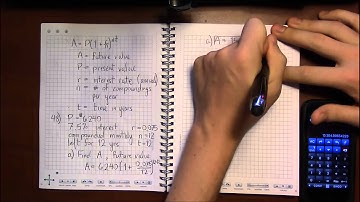 A = P(1+r/n)^nt
A = future value
P = present value
r = interest rate (annual)
n = # of compoundings
per year
t = time in years
P = $6240
7.5% interest r=0.075
compounded monthly n=12
for 12 yrs t=12
a) Find A, future value
A = 6240(1+0.075/12)
a) A =